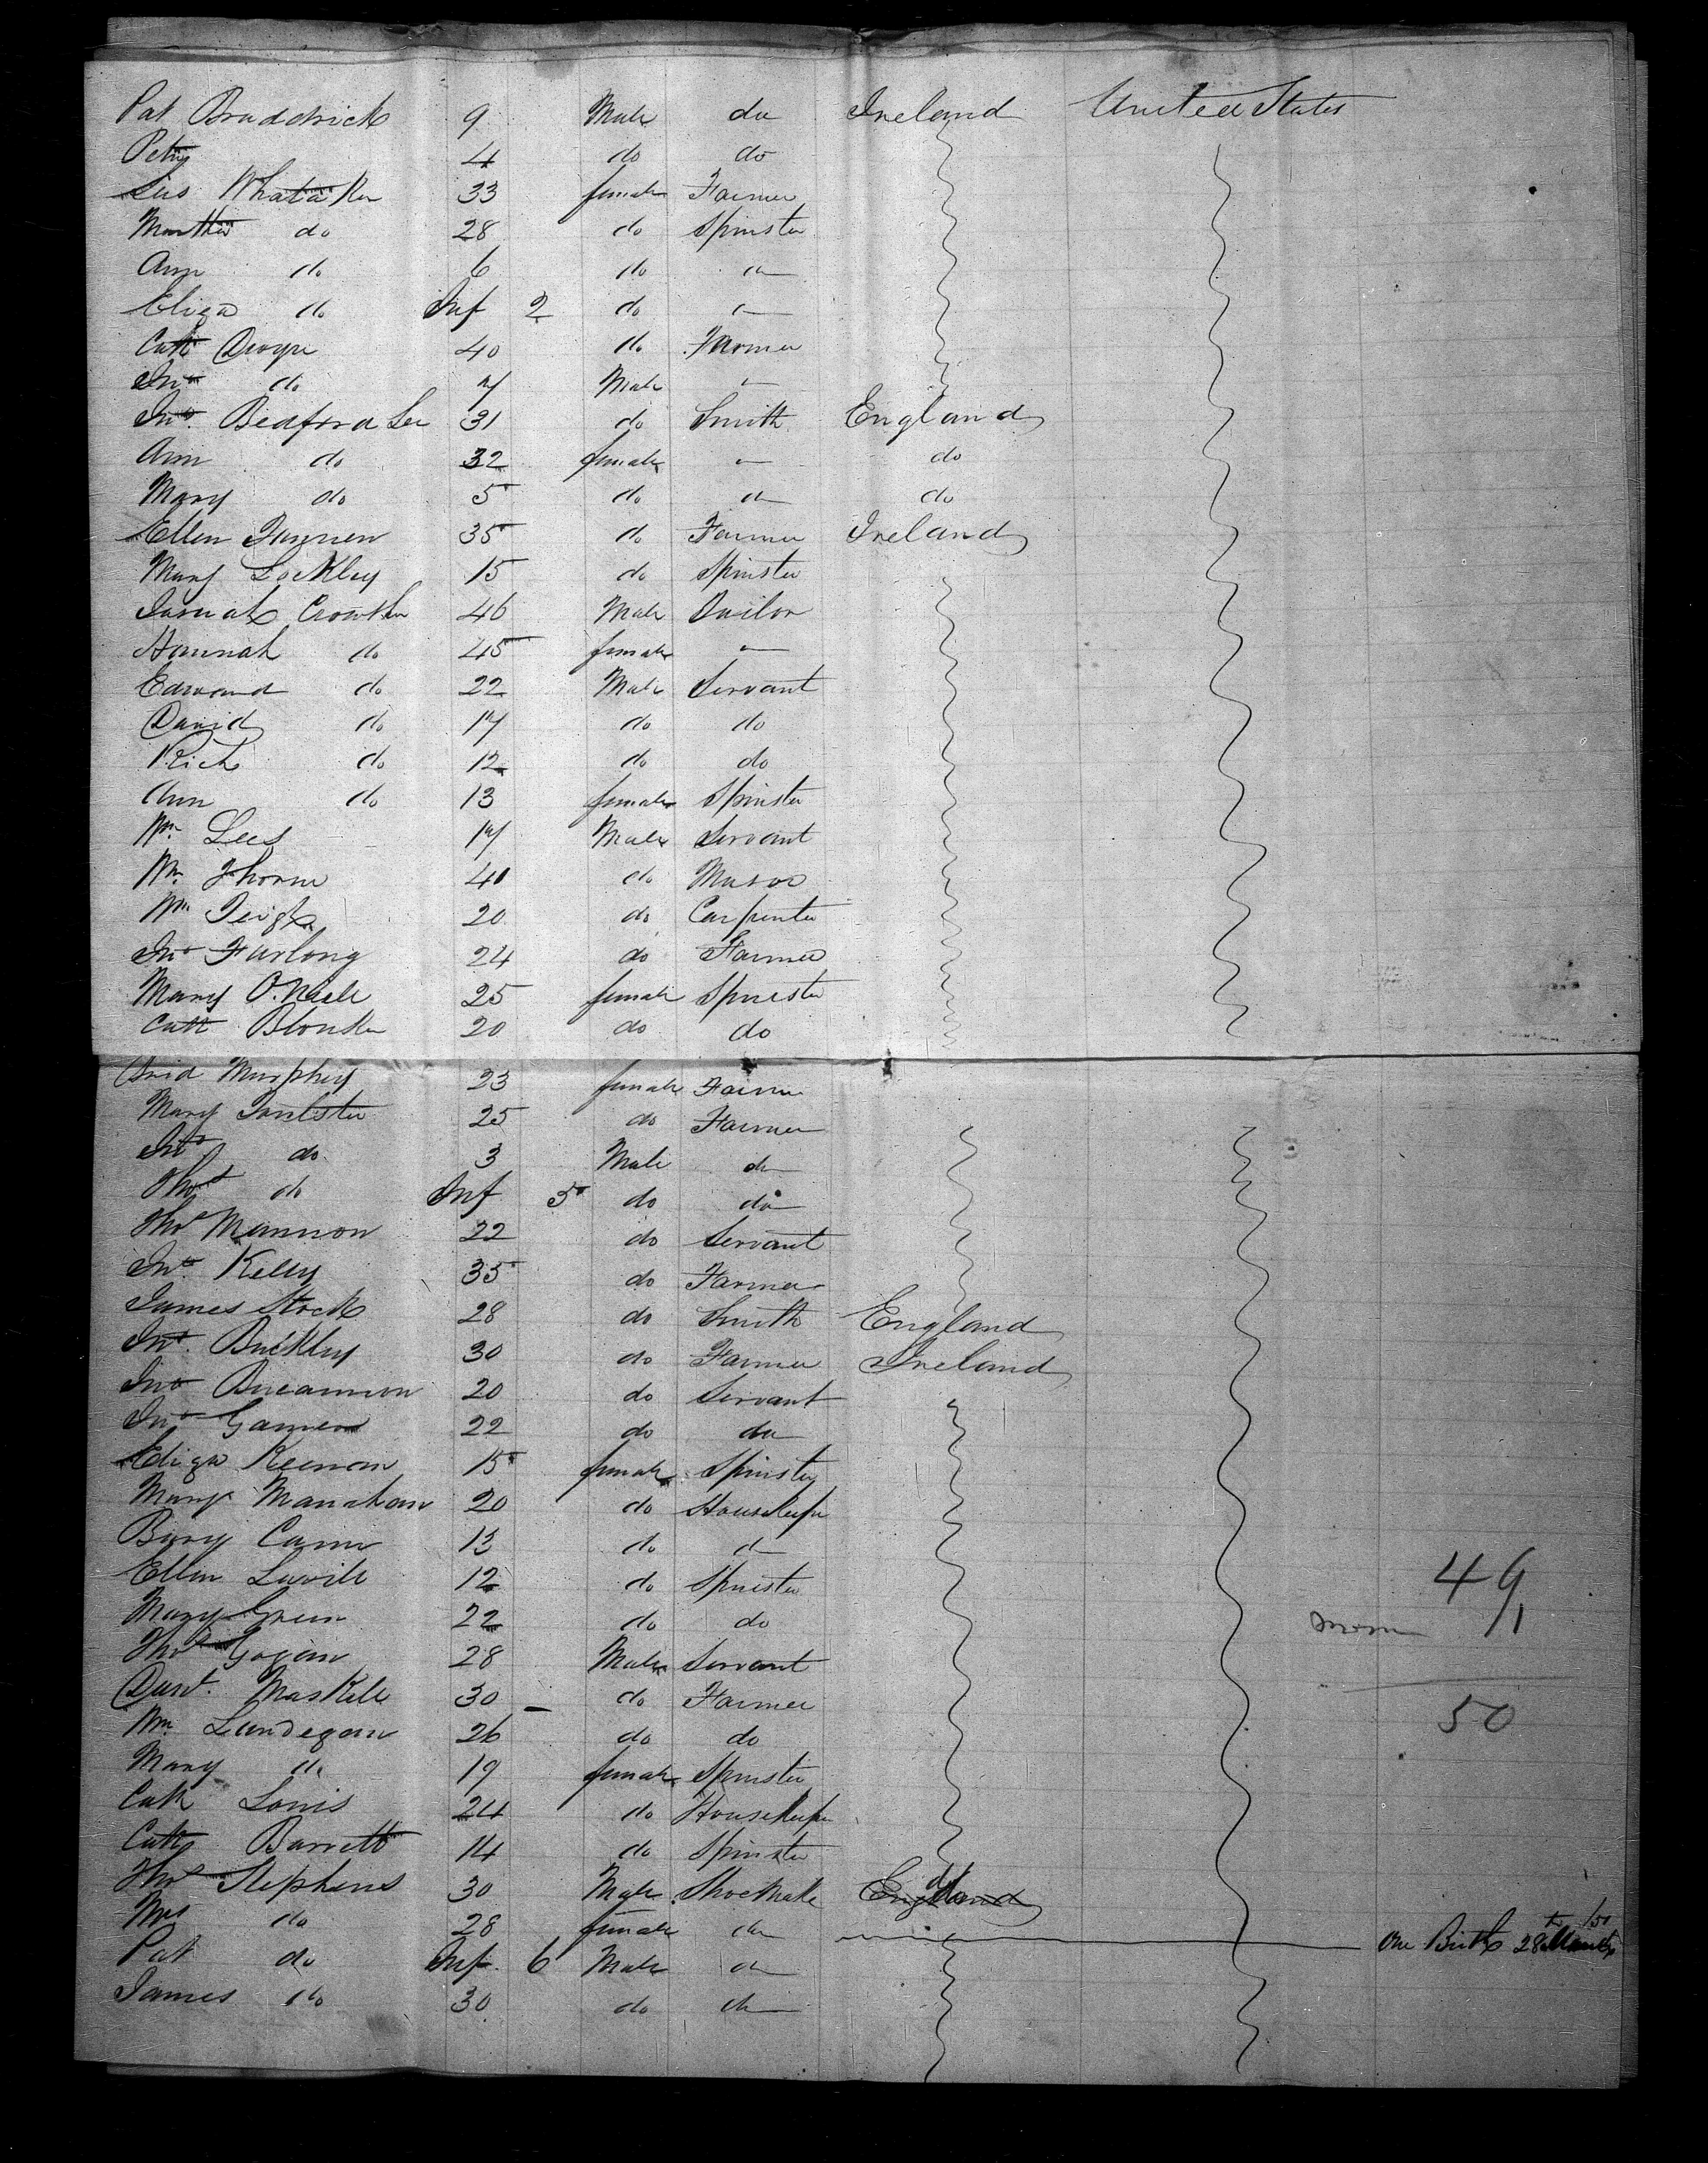 Pat Braddrick 9 Male do Ireland United States
4 do do
Whataker 33 female Farmer
Martha do 28 do Spinster
Ann do 6 do do
Eliza do Inf 2 do
Cath Dwyer 40 do Farmer
Jno do 7 Male
Jno. Bedford Lee 31 do Smith England
Ann do 32 female do
Mary do 5 do do do
Ellen 35 do Farmer Ireland
Mary Lockley 15 do Spinster
Crowther 46 Male Tailor
Hannah do 45 female
Edward do 22 Male Servant
David do 17 do do
Rich do 12 do do
Ann do 13 female Spinster
Wm. Lees 17 Male Servant
Wm. Thorne 40 do Mason
Wm 20 do Carpenter
Jno Furlong 24 do Farmer
Mary O.Neile 25 female Spinster
Cath 20 do do
Brid Murphy 23 female Farmer
Mary 25 do Farmer
Jno do 3 Male do
Thos do Inf 5 do do
Thos Mannion 22 do Servant
Jno. Kelly 35 do Farmer
James Stock 28 do Smith England
Jno. Buckley 30 do Farmer Ireland
Jno 20 do Servant
Jno 22 do do
Eliza Keenan 15 female Spinster
Mary Manahan 20 do Housekeeper
13 do do
Ellen 12 do Spinster 49
Mary Green 22 do do
Thos Gogan 28 Male Servant
Maskell 30 do Farmer
Wm Lundegan 26 do do 50
Mary do 19 female Spinster
Cath Lonis 24 do Housekeeper
Cath Barrett 14 do Spinster
Thos Stephens 30 Male Shoemake England do
Mrs do 28 female do One Birth 28th March /51
Pat do Inf. 6 Male do
James do 30 do do